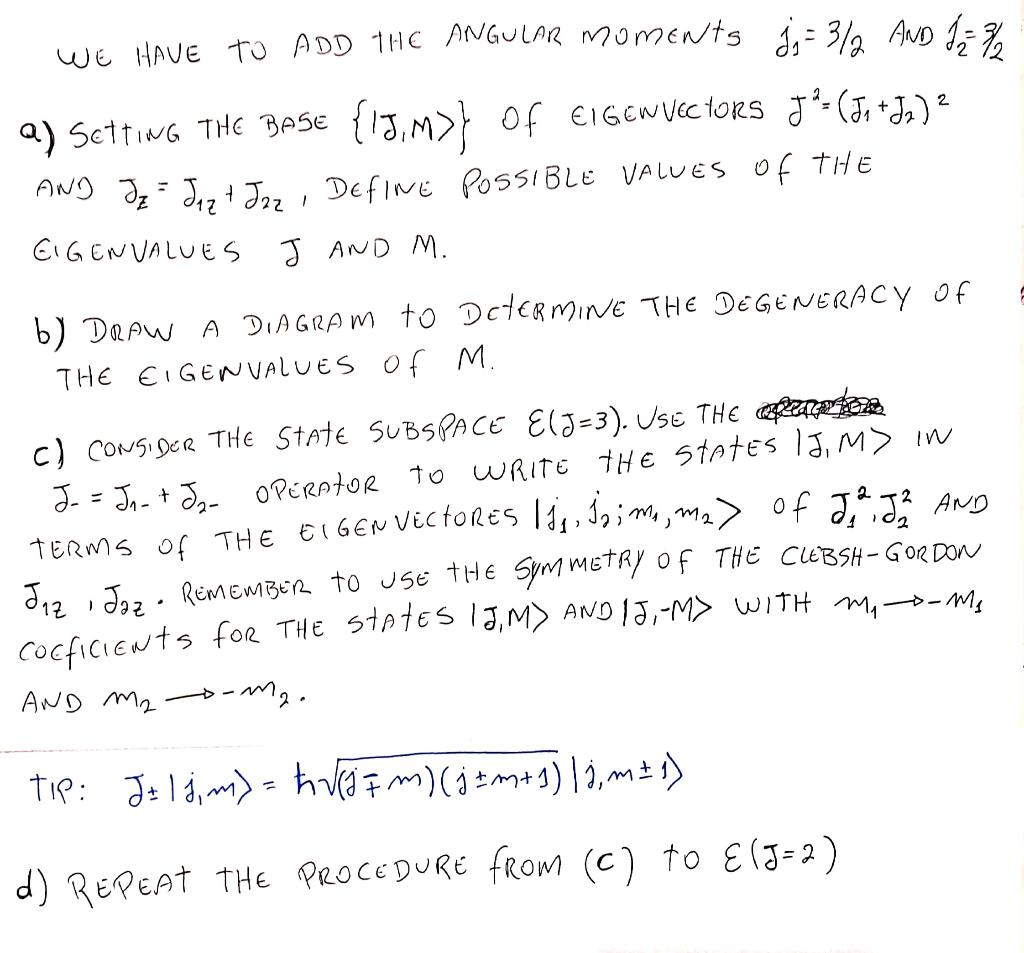 WE HAVE TO ADD THE ANGULAR MOMENTS j₁ = 3/2 AND j₂ = 3/2
a) SETTING THE BASE {|J,M>} OF EIGENVECTORS J² = (J₁ + J₂)²
AND J_z = J_1z + J_2z , DEFINE POSSIBLE VALUES OF THE
EIGENVALUES J AND M.
b) DRAW A DIAGRAM TO DETERMINE THE DEGENERACY OF
THE EIGENVALUES OF M.
c) CONSIDER THE STATE SUBSPACE Ɛ(J=3). USE THE
J₋ = J₁₋ + J₂₋ OPERATOR TO WRITE THE STATES |J,M> IN
TERMS OF THE EIGENVECTORES |j₁, j₂; m₁, m₂> OF J₁², J₂² AND
J_1z , J_2z . REMEMBER TO USE THE SYMMETRY OF THE CLEBSH-GORDON
COEFICIENTS FOR THE STATES |J,M> AND |J,-M> WITH m₁ → -m₁
AND m₂ → -m₂.
TIP: J± |j,m> = ħ√(j∓m)(j±m+1) |j,m±1>
d) REPEAT THE PROCEDURE FROM (C) TO Ɛ(J=2)